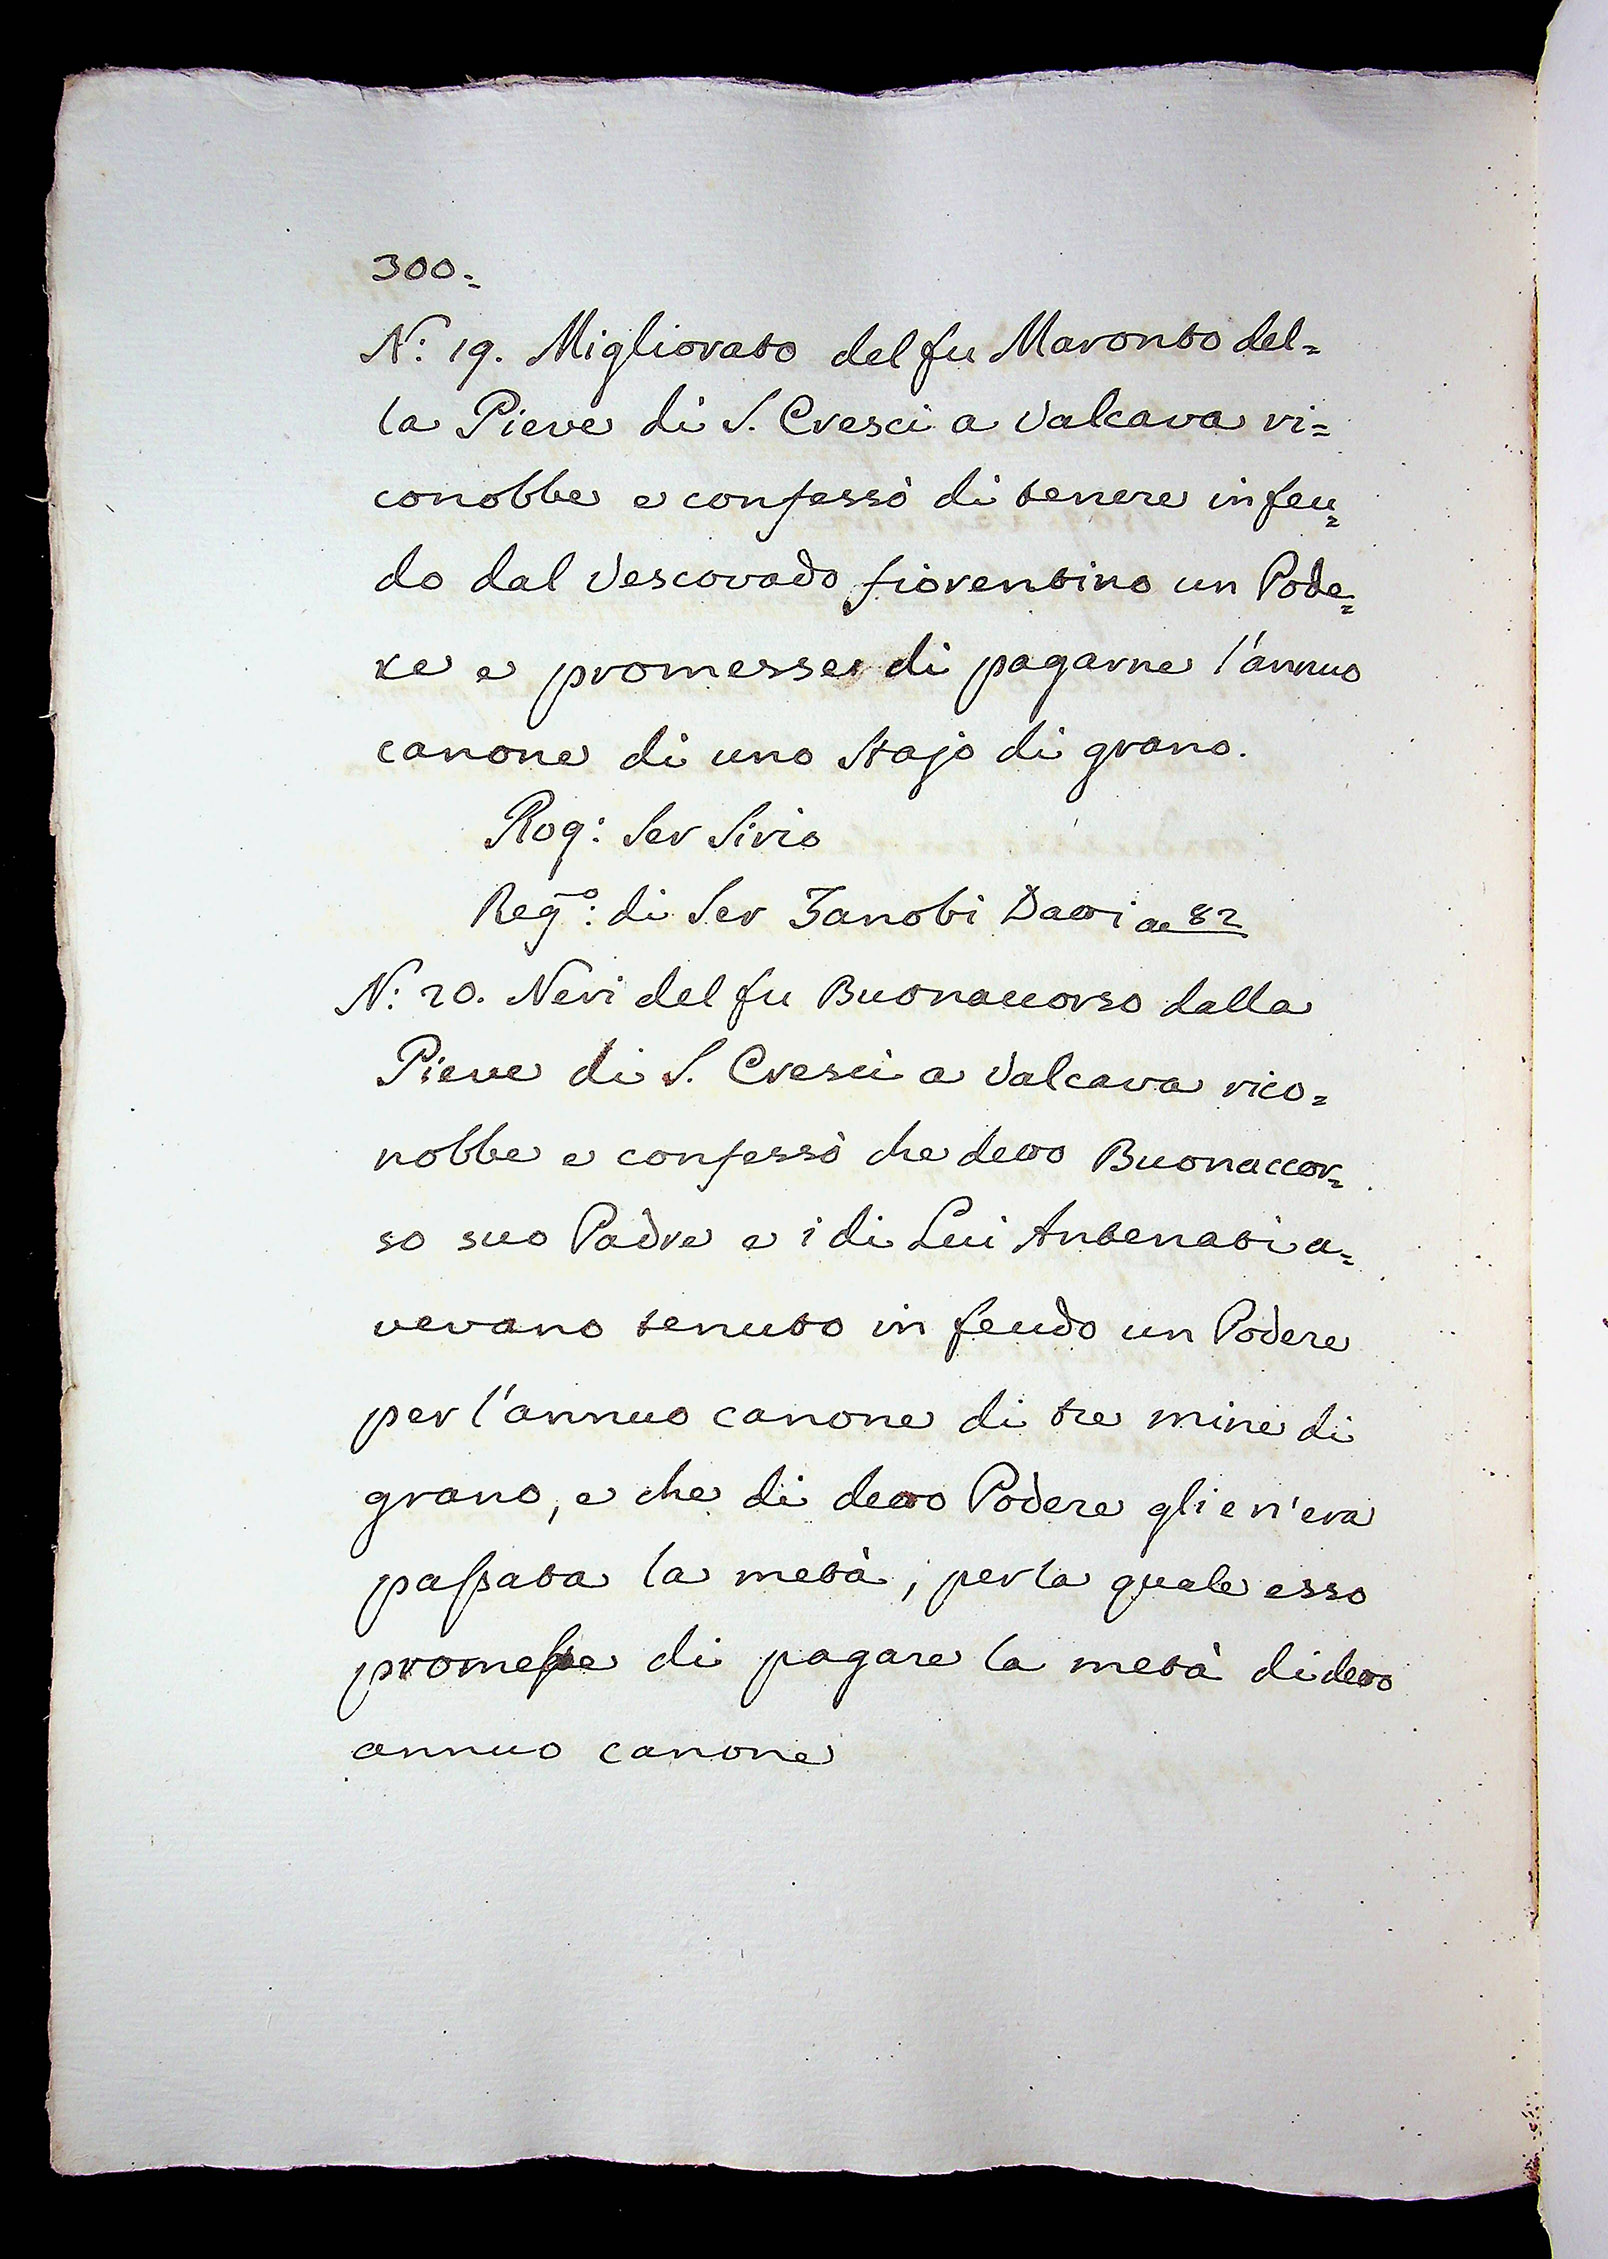 300.=
N: 19. Migliorato del fu Maronto del=
la Pieve di S. Cresci a Valcava ri=
conobbe e confessò di tenere in feu=
do dal Vescovado fiorentino un Pode=
re e promesse di pagarne l'annuo
canone di uno Stajo di grano.
Rog: Ser Sirio
Reg.o: di Ser Zanobi Datti a 82
N: 20. Neri del fu Buonaccorso dalla
Pieve di S. Cresci a Valcava rico=
nobbe e confessò che detto Buonaccor=
so suo Padre e i di Lui Antenati a=
vevano tenuto in feudo un Podere
per l'annuo canone di tre mine di
grano, e che di detto Podere glie n'era
passata la metà, per la quale esso
promesse di pagare la metà di detto
annuo canone